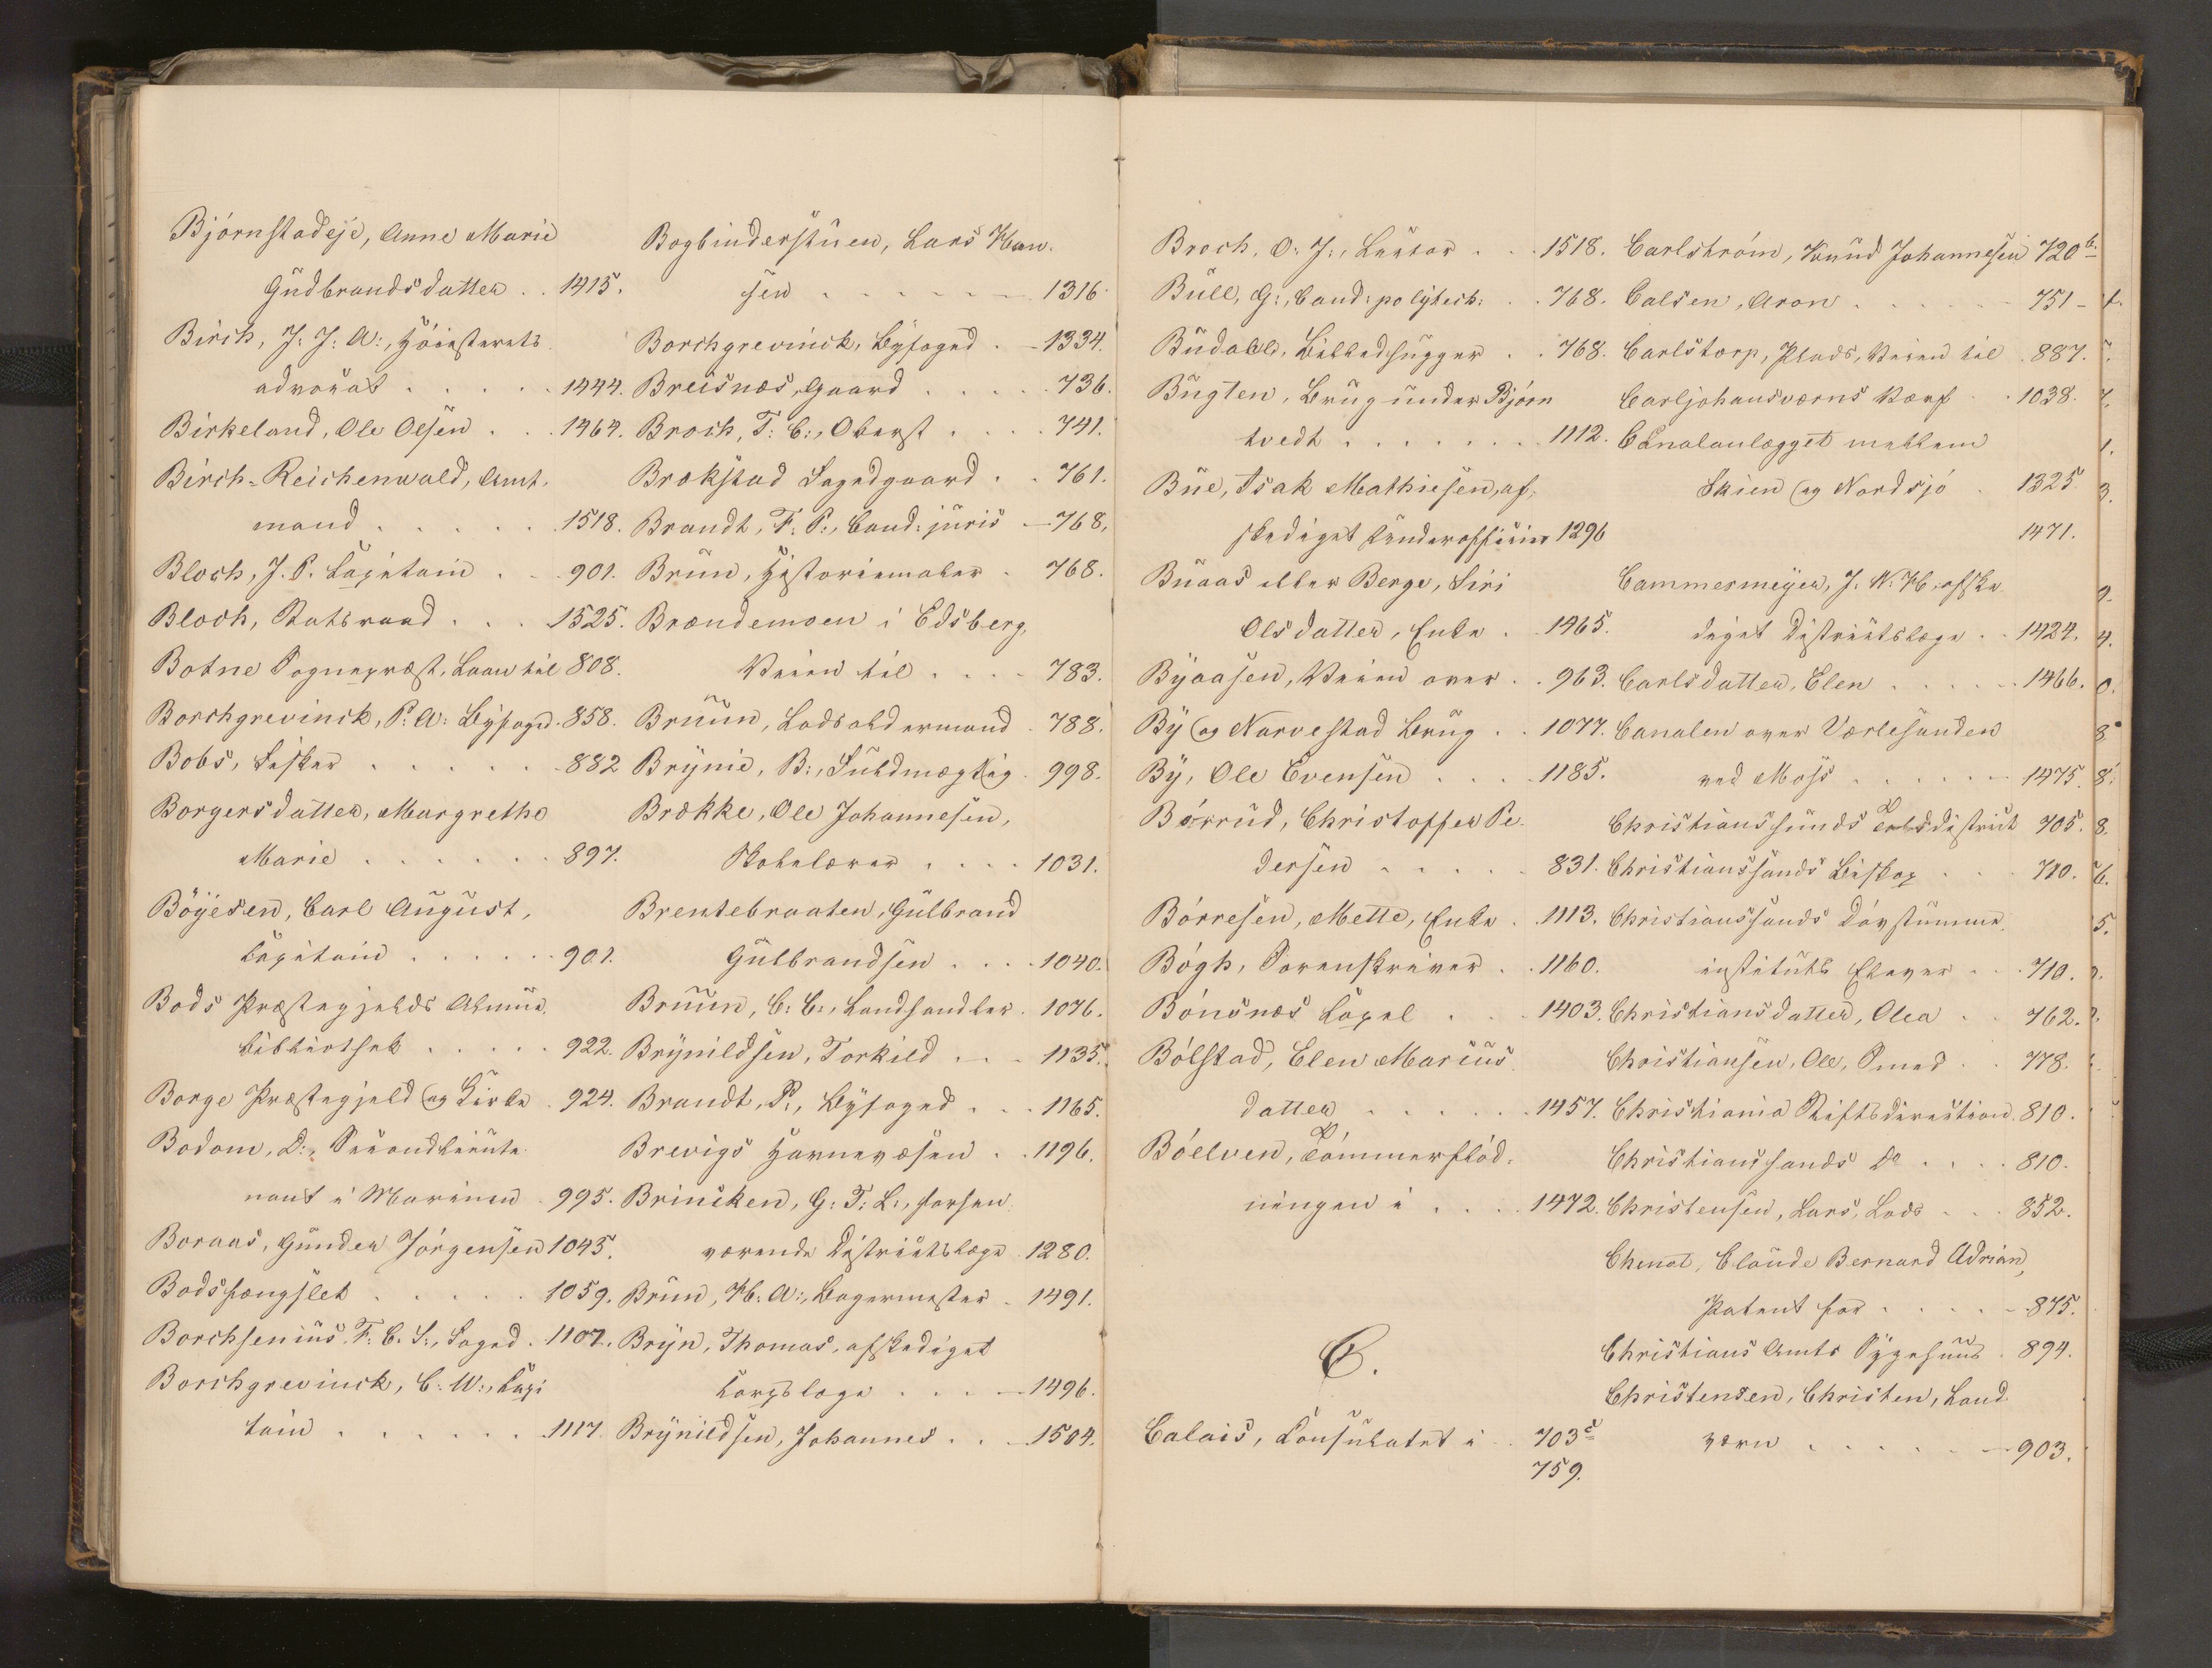 Bjørnstadeje, Anne Marie
Gudbrandsdatter . . 1415.
Birch, J: J: A:, Höiesterets
advokat . . . . . 1444.
Birkeland, Ole Olsen . . . 1464.
Birch-Reichenwald, Amt,
mand . . . . . 1518.
Bloch, J. P. Capitain . . 901.
Bloch, Statsraad . . . 1525.
Botne Sognepræst, Laan til 808.
Borchgrevinck, P: A: Byfoged. 858.
Bobs, Fisker . . . . . 882
Borgersdatter, Margrethe
Marie . . . . . . 897.
Böyesen, Carl August,
Capitain . . . . . . 901.
Bods Præstegjelds Almue,
bibliothek . . . . . 922.
Borge Præstegjeld og Kirke . 924.
Bodom, D:, Secondlieute
nant i Marinen . 995.
Boraas, Gunder Jörgensen 1045.
Bodsfængslet . . . . . 1059.
Borchsenius. F: C. S:, Foged . 1107.
Borchgrevinck, C: W:, Capi
tain . . . . . . . 1117.
Bogbinderstuen, Lars Han.
sen . . . . . . 1316.
Borchgrevinck, Byfoged . . 1334.
Breisnæs, Gaard . . . . . 736.
Broch, T: C:, Oberst . . . . 741.
Brokstad Fogedgaard . . 761.
Brandt, F: P:, Cand: juris 768.
Brun, Historiemaler . 768.
Brændemoen i Edsberg,
Veien til . . . . 783.
Bruun, Lodsoldermand . 788.
Brynie, B:, Fuldmægtig . 998.
Brække, Ole Johannesen,
Skolelærer . . . . 1031.
Brentebraaten, Gulbrand
Gulbrandsen . . . . 1040.
Bruun, C: C:, Landhandler . 1076.
Brynildsen, Torkild . . . 1135.
Brandt, P:, Byfoged . . . 1165.
Brevigs Havnevæsen . . 1196.
Brincken, G: T: L:, forhen,
værende Districtslæge . 1280.
Brun, H: A:, Bagermester . 1491.
Bryn, Thomas, afskediget
Corpslæge . . . . 1496.
Brynildsen, Johannes . . . 1504.
Broch, O: J:, Lector . . . 1518.
Bull, G:, Cand: polytech: . . 768.
Budal, Billedhugger . . 768.
Bugten, Brug under Bjørn
tvedt . . . . . . . 1112.
Bue, Isak Mathiesen, af,
skediget Underofficier 1296
Buaas eller Berge, Siri
Olsdatter, Enke . . 1465.
Byaasen, Veien over . . 963.
By og Narvestad Brug . . 1077.
By, Ole Evensen . . . . 1185.
Børrud, Christoffer Pe.
dersen . . . . . 831.
Börresen, Mette, Enke . 1113.
Bögh, Sorenskriver . . 1160.
Bönsnæs Capel . . . 1403.
Bölstad, Elen Marius
datter . . . . . . 1457.
Böelven, Tömmerflöd,
ningen i . . . . 1472.
C.
Calais, Consulatet i . . 703 c
759.
Carlström, Knud Johannesen 720 b.
Calsen, Aron . . . . . . 751
Carlstorp, Plads, Veien til . 887.
Carljohansværns Værf . . 1038.
Canalanlægget mellem
Skien og Nordsjö . 1325
1471.
Cammermeyer, J. N: H:, afske
diget Districtslæge . . 1424.
Carlsdatter, Elen . . . . . 1466.
Canalen over Værlesanden
ved Moss . . . . . . 1475.
Christianssunds Tolddistrict 705.
Christianssands Biskop . . . 710.
Christianssands Dövstumme,
instituts Elever . . . 710.
Christiansdatter, Olea . . 762.
Christiansen, Ole, Smed . . 778.
Christiania Stiftsdirection . 810.
Christianssands Do . . . . 810.
Christensen, Lars, Lods . . . 852.
Chenot, Claude Bernard Adrian,
Patent for . . . . . 875.
Christians Amts Sygehuus . 894.
Christensen, Christen, Land
værn . . . . . . 903.